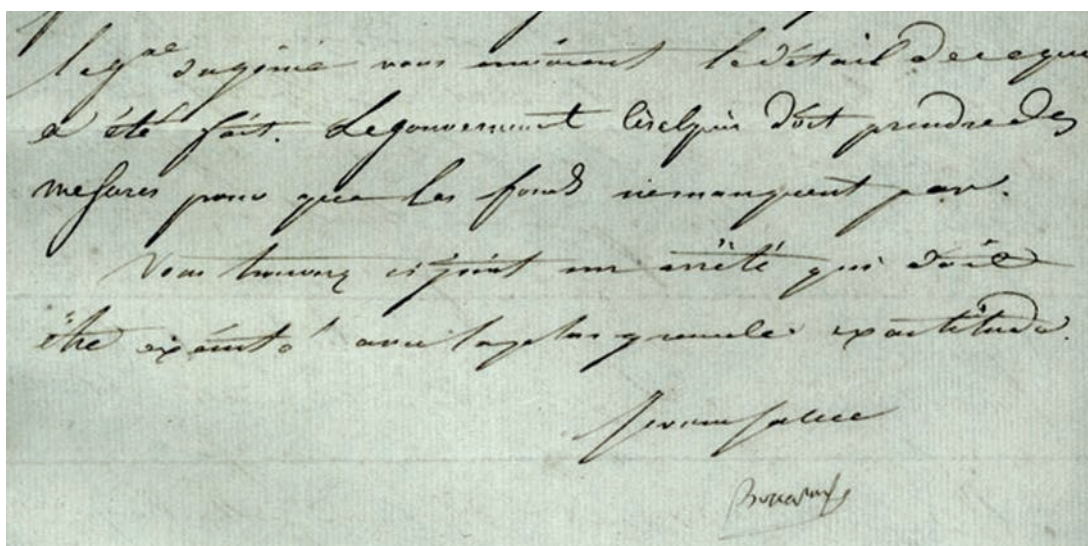 le gal du génie vous enverront le détail de ce qui
a été fait. Le gouvernement Cisalpin doit prendre des
mesures pour que les fonds ne manquent pas.
Vous trouverez ci joint un arrêté qui doit
être exécuté avec la plus grande exactitude.
Je vous salue
Bonaparte